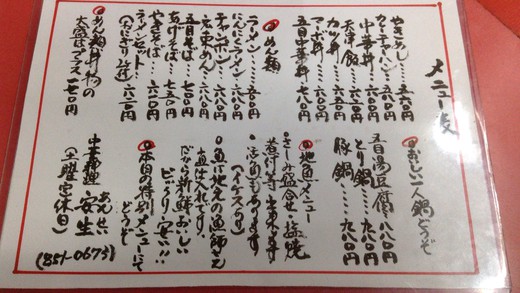 メニュー表
やきめし……五六〇円
カレーチャーハン……六六〇円
中華丼……六三〇円
天津飯……六五〇円
カツ丼……六五〇円
マーボ丼……六三〇円
五目中華丼……七八〇円
めん類
ラーメン……五三〇円
にんにくラーメン……六三〇円
チャンポン……六八〇円
広東めん……六八〇円
五目そば……七八〇円
あげそば……七三〇円
やきそば……六三〇円
ラーメンセット……六三〇円
(おにぎり2ケ付)
めん類丼物の
大盛はプラス一七〇円
おいしい一人鍋どうぞ
五目湯豆腐……八八〇円
とり鍋……九八〇円
豚鍋……九八〇円
地魚メニュー
さしみ盛合せ・塩焼
煮付等出来ます
活魚もあります
魚は地元の漁師さん
直入れです。
だから新鮮おいしい
ビックリ安い!!
本日の特別メニューにて
どうぞ
中華料理 安生
(土曜定休日)
(851-0673)